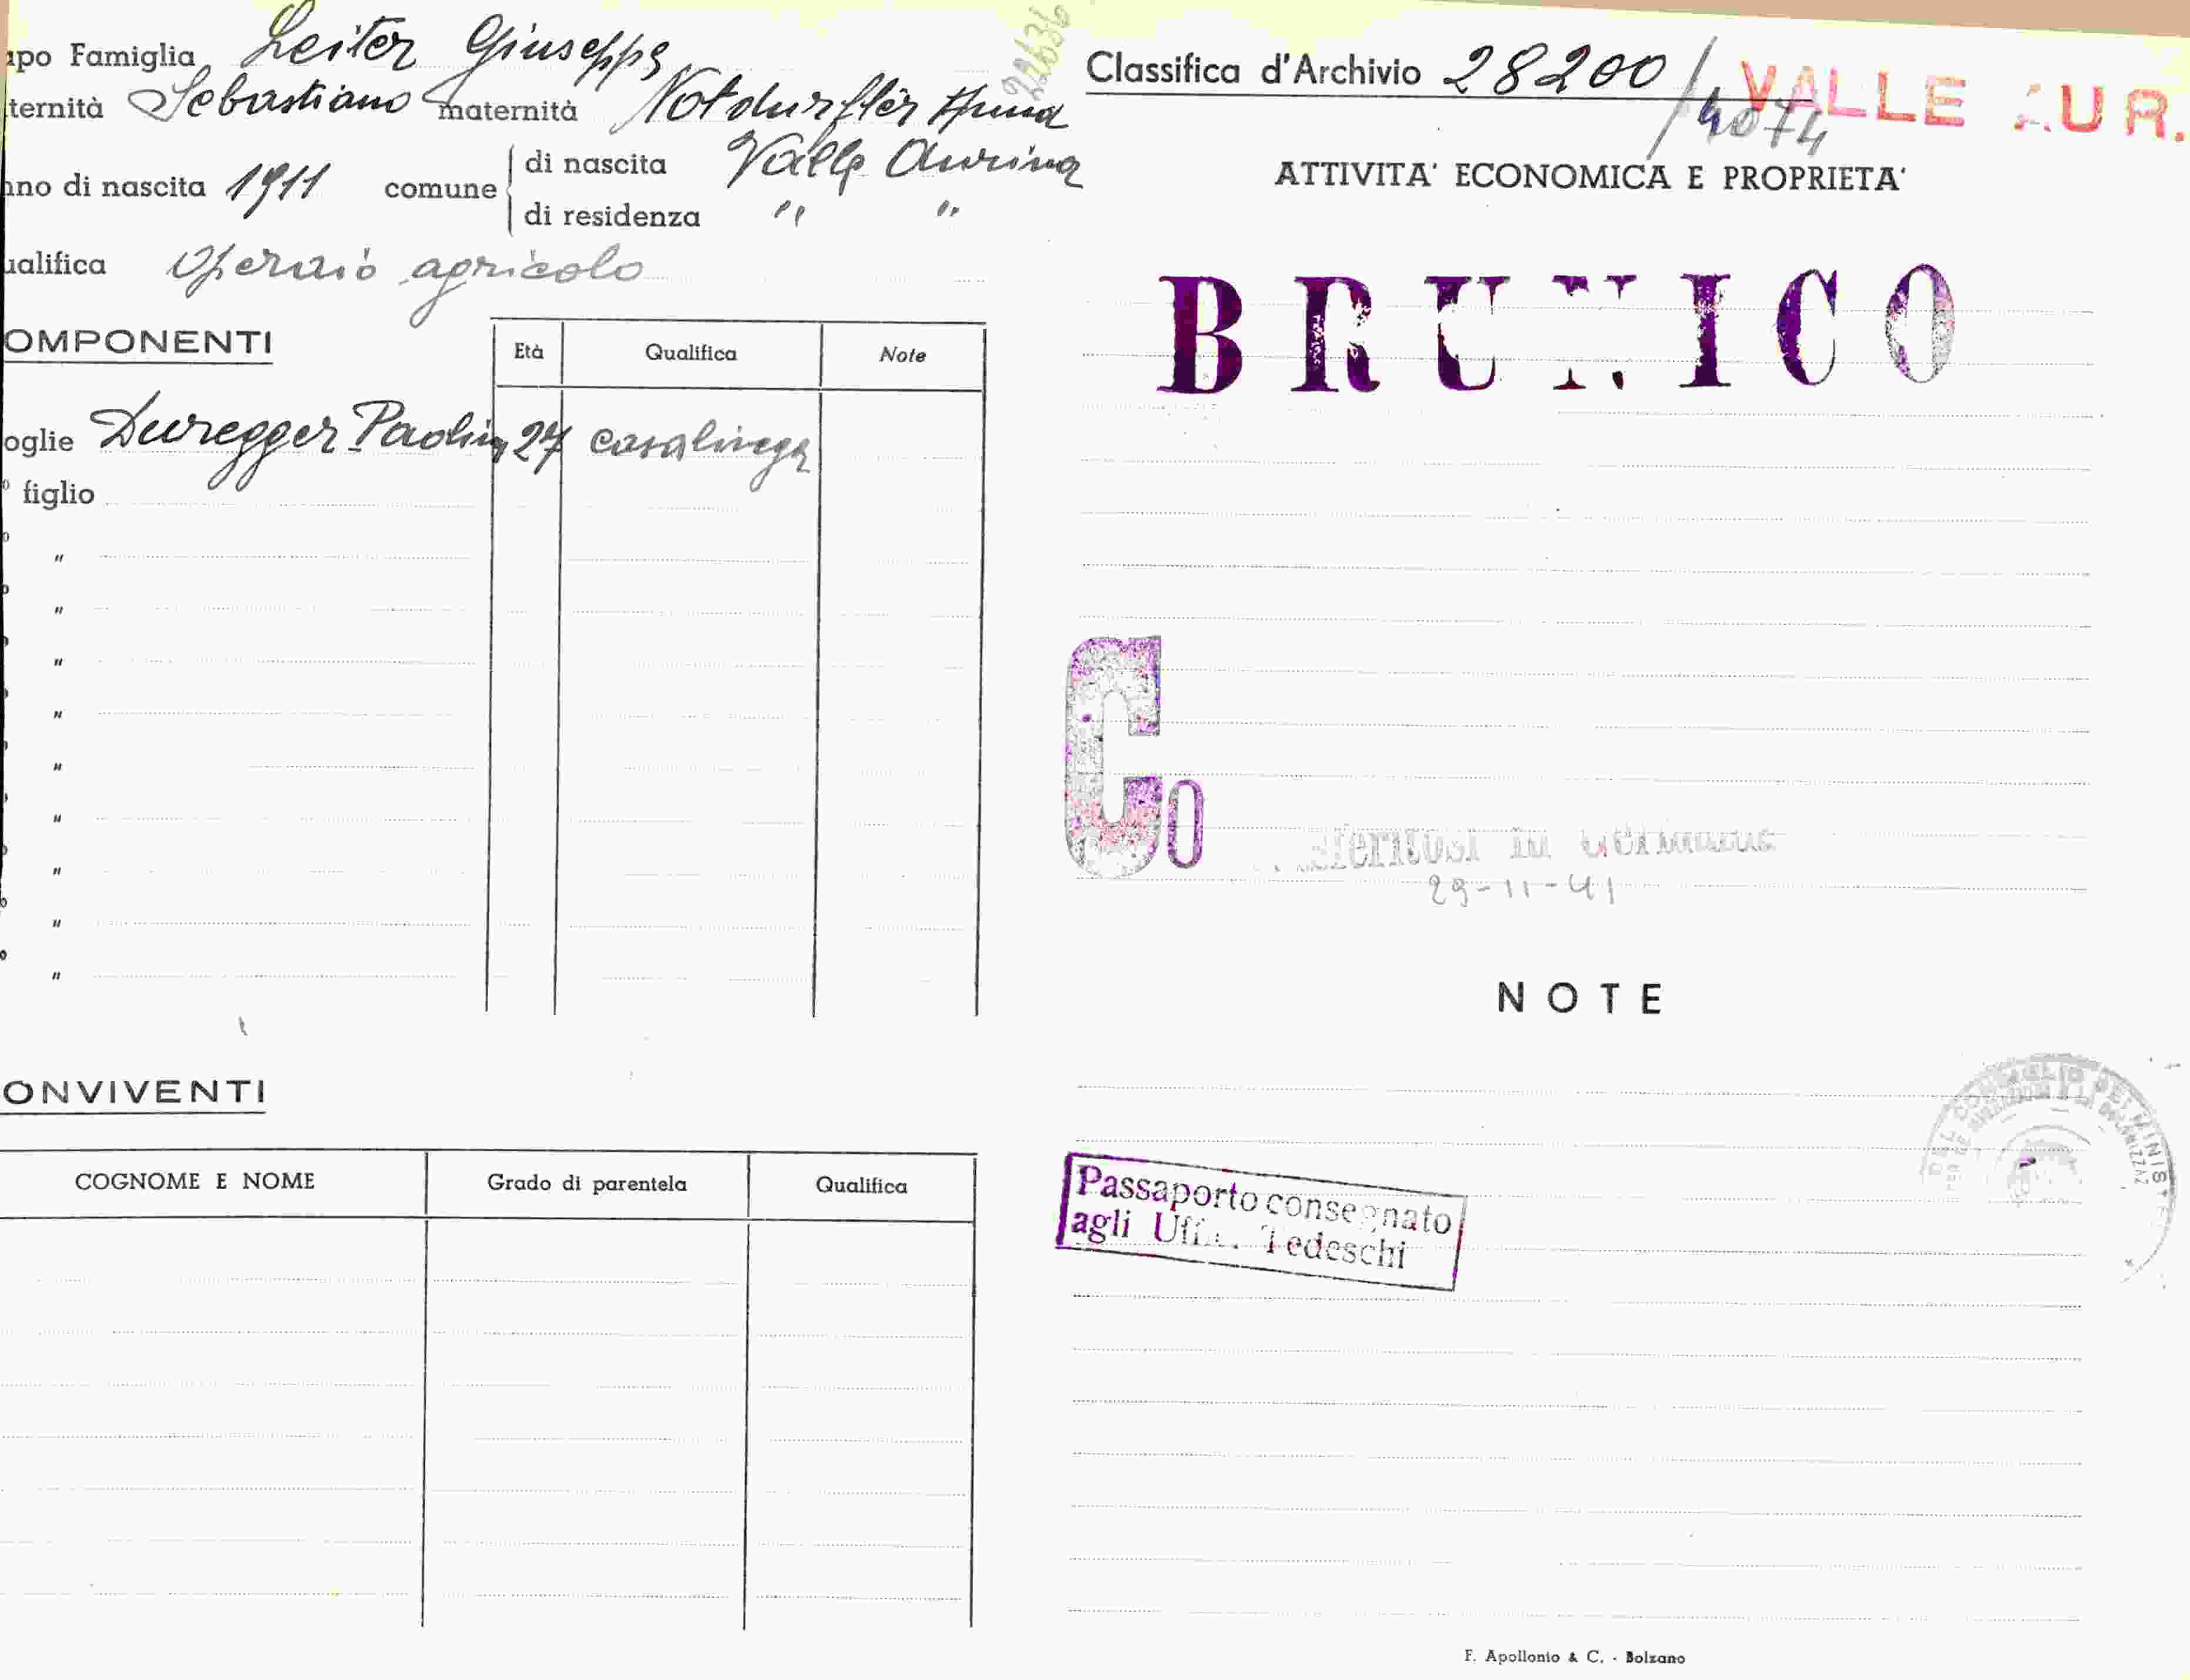 apo Famiglia Leiter Giuseppe
ternità Sebastiano maternità Notdurfter Anna
nno di nascita 1911 comune di nascita Valle Aurina
di residenza " "
ualifica Operaio agricolo
OMPONENTI
Età Qualifica Note
oglie Duregger Paolina 27 casalinga
° figlio
° "
° "
° "
° "
° "
° "
° "
° "
° "
ONVIVENTI
COGNOME E NOME Grado di parentela Qualifica
22636
Classifica d'Archivio 28200/4074
VALLE AUR.
ATTIVITA' ECONOMICA E PROPRIETA'
BRUNICO
Co
in
29-11-41
NOTE
Passaporto consegnato
agli Uffic. Tedeschi
F. Apollonio & C. - Bolzano